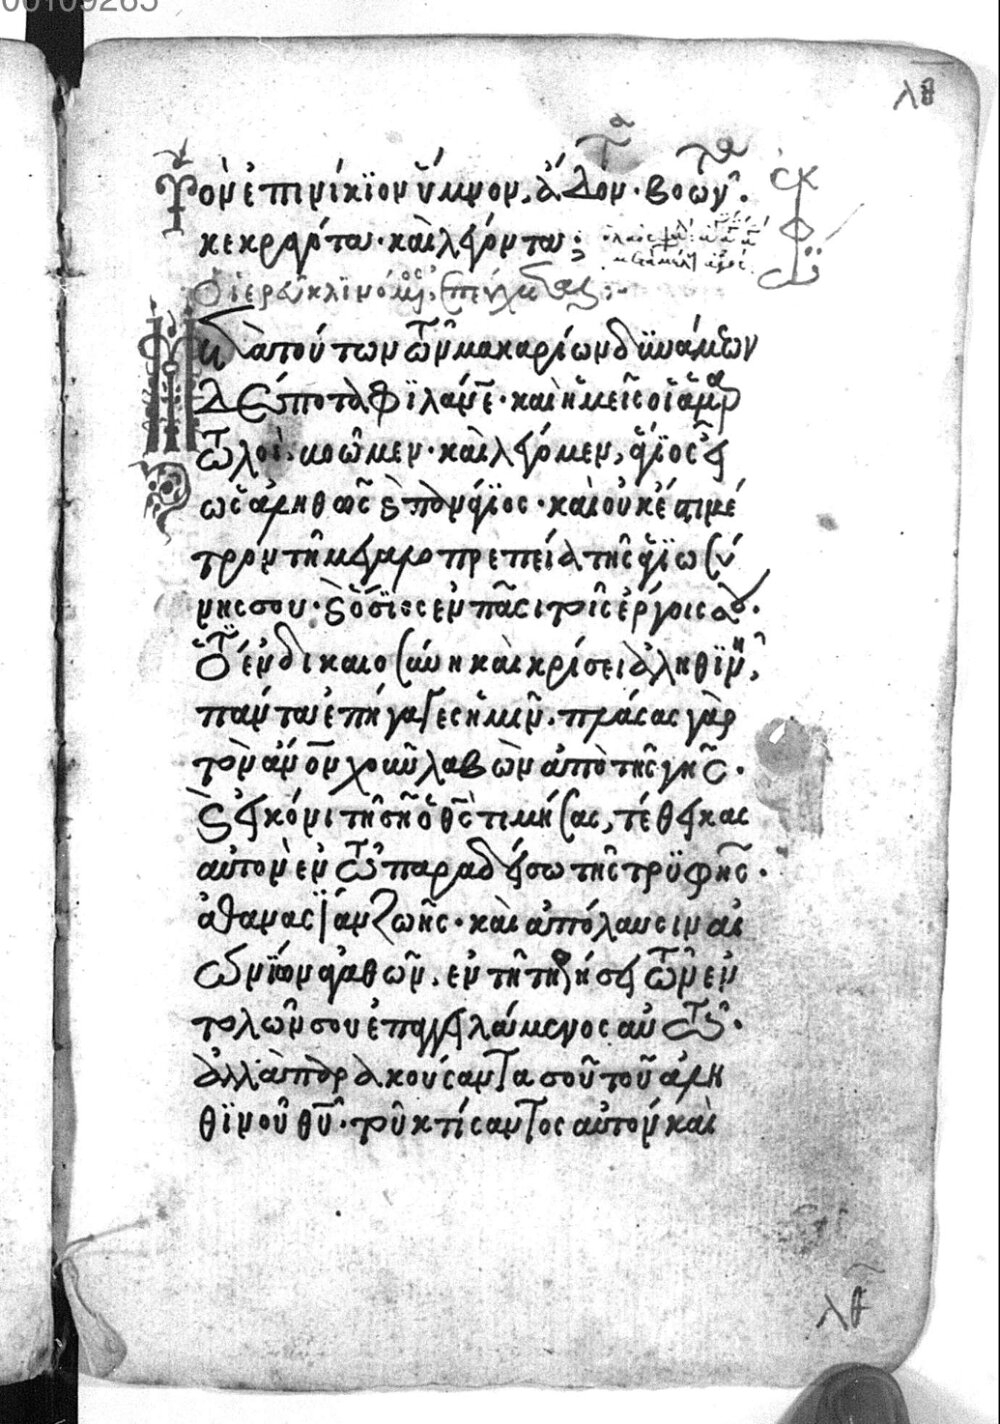 00109265
λθ
Τὸν ἐπινίκιον ὕμνον, ἄδον. βοῶν.
κεκραγότα. καὶ λέγοντα:
Ὁ ἱερεὺς κλινόμενος ἐπεύχεται:
Μετὰ τούτων τῶν μακαρίων δυνάμεων
δέσποτα φιλάνε. καὶ ἡμεῖς οἱ ἁμαρ
τωλοὶ. βοῶμεν. καὶ λέγομεν, ἅγιος εἶ
ὡς ἀληθῶς καὶ πανάγιος. καὶ οὐκ ἔστι μέ
τρον τῆ μεγαλοπρεπεία τῆς ἁγιωσύ
νης σου. καὶ ὅσιος ἐν πᾶσι τοῖς ἔργοις σου.
ὅτι ἐν δικαιοσύνη καὶ κρίσει ἀληθινῆ,
πάντα ἐπήγαγες ἡμῖν. πλάσας γὰρ
τὸν ἄνον χοῦν λαβὼν ἀπὸ τῆς γῆς.
καὶ εἰκόνι τῆ σῆ ὁ θς τιμήσας, τέθεικας
αὐτὸν ἐν τῶ παραδείσω τῆς τρυφῆς.
ἀθανασίαν ζωῆς. καὶ ἀπόλαυσιν αἰ
ωνίων ἀγαθῶν, ἐν τῆ τηρήσει τῶν ἐν
τολῶν σου ἐπαγγειλάμενος αὐτῶ.
ἀλλὰ παρακούσαντα σοῦ τοῦ ἀλη
θινοῦ θυ. τοῦ κτίσαντος αὐτόν καὶ
λθ